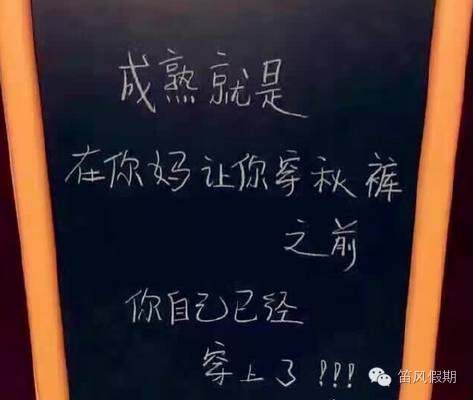 成熟就是
在你妈让你穿秋裤
之前
你自己已经
穿上了!!!
笛风假期